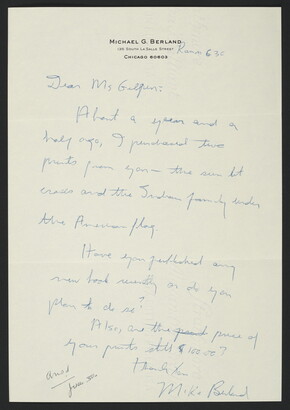 MICHAEL G. BERLAND
135 SOUTH LA SALLE STREET Room 630
CHICAGO 60603
Dear Ms Gilpin:
About a year and a
half ago, I purchased two
prints from you — the sun lit
cross and the Indian family under
the American flag
Have you published any
new book recently or do you
plan to do so?
Also, are the price of
your prints still $100.00?
Thank you
Mike Berland